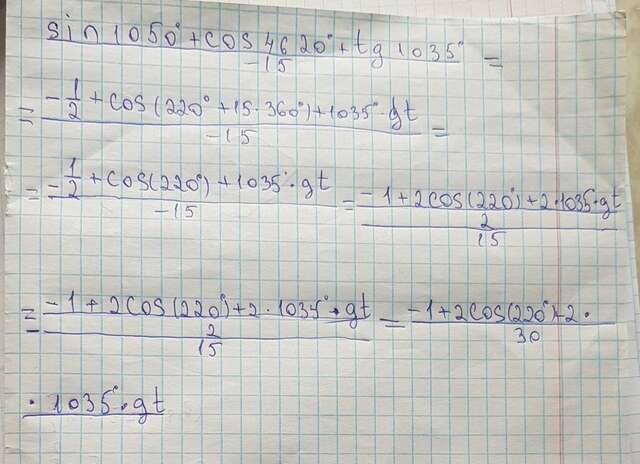 (sin 1050° + cos 4620° + tg 1035°)/(-15) =
= (-1/2 + cos(220° + 15·360°) + 1035°·gt)/(-15) =
= (-1/2 + cos(220°) + 1035°·gt)/(-15) = ((-1 + 2cos(220°) + 2·1035°·gt)/2)/15
= ((-1 + 2cos(220°) + 2·1035°·gt)/2)/15 = (-1 + 2cos(220°) + 2·)/30
·1035°·gt